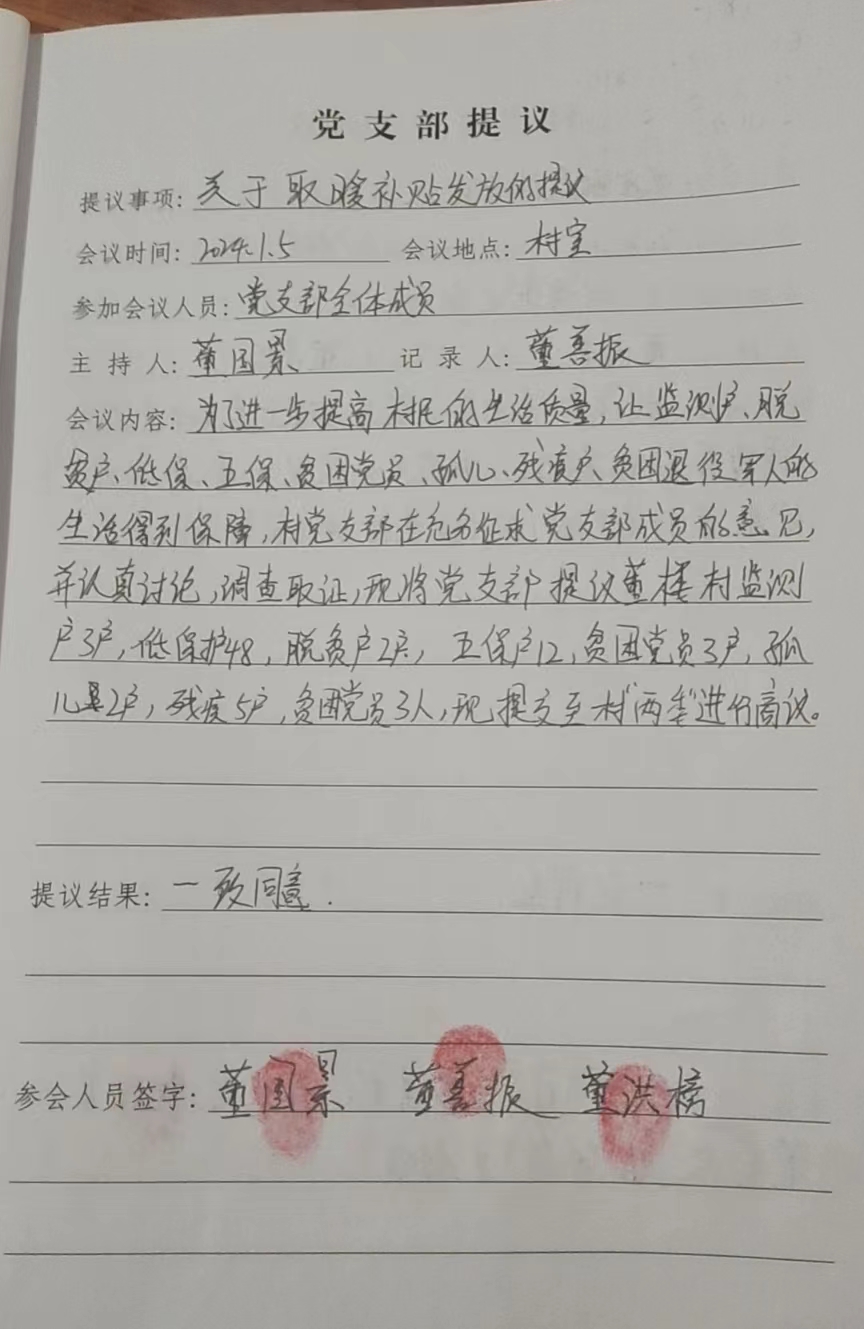 党支部提议
提议事项: 关于取暖补贴发放的提议
会议时间: 2024.1.5 会议地点: 村室
参加会议人员: 党支部全体成员
主持人: 董国景 记录人: 董善振
会议内容: 为了进一步提高村民的生活质量,让监测户、脱
贫户、低保、五保、贫困党员、孤儿、残疾户、贫困退役军人的
生活得到保障,村党支部在充分征求党支部成员的意见,
并认真讨论,调查取证,现将党支部提议董楼村监测
户3户,低保护48,脱贫户2户,五保户12,贫困党员3户,孤
儿2户,残疾5户,贫困党员3人,现提交至村"两委"进行商议。
提议结果: 一致同意.
参会人员签字: 董国景 董善振 董洪榜